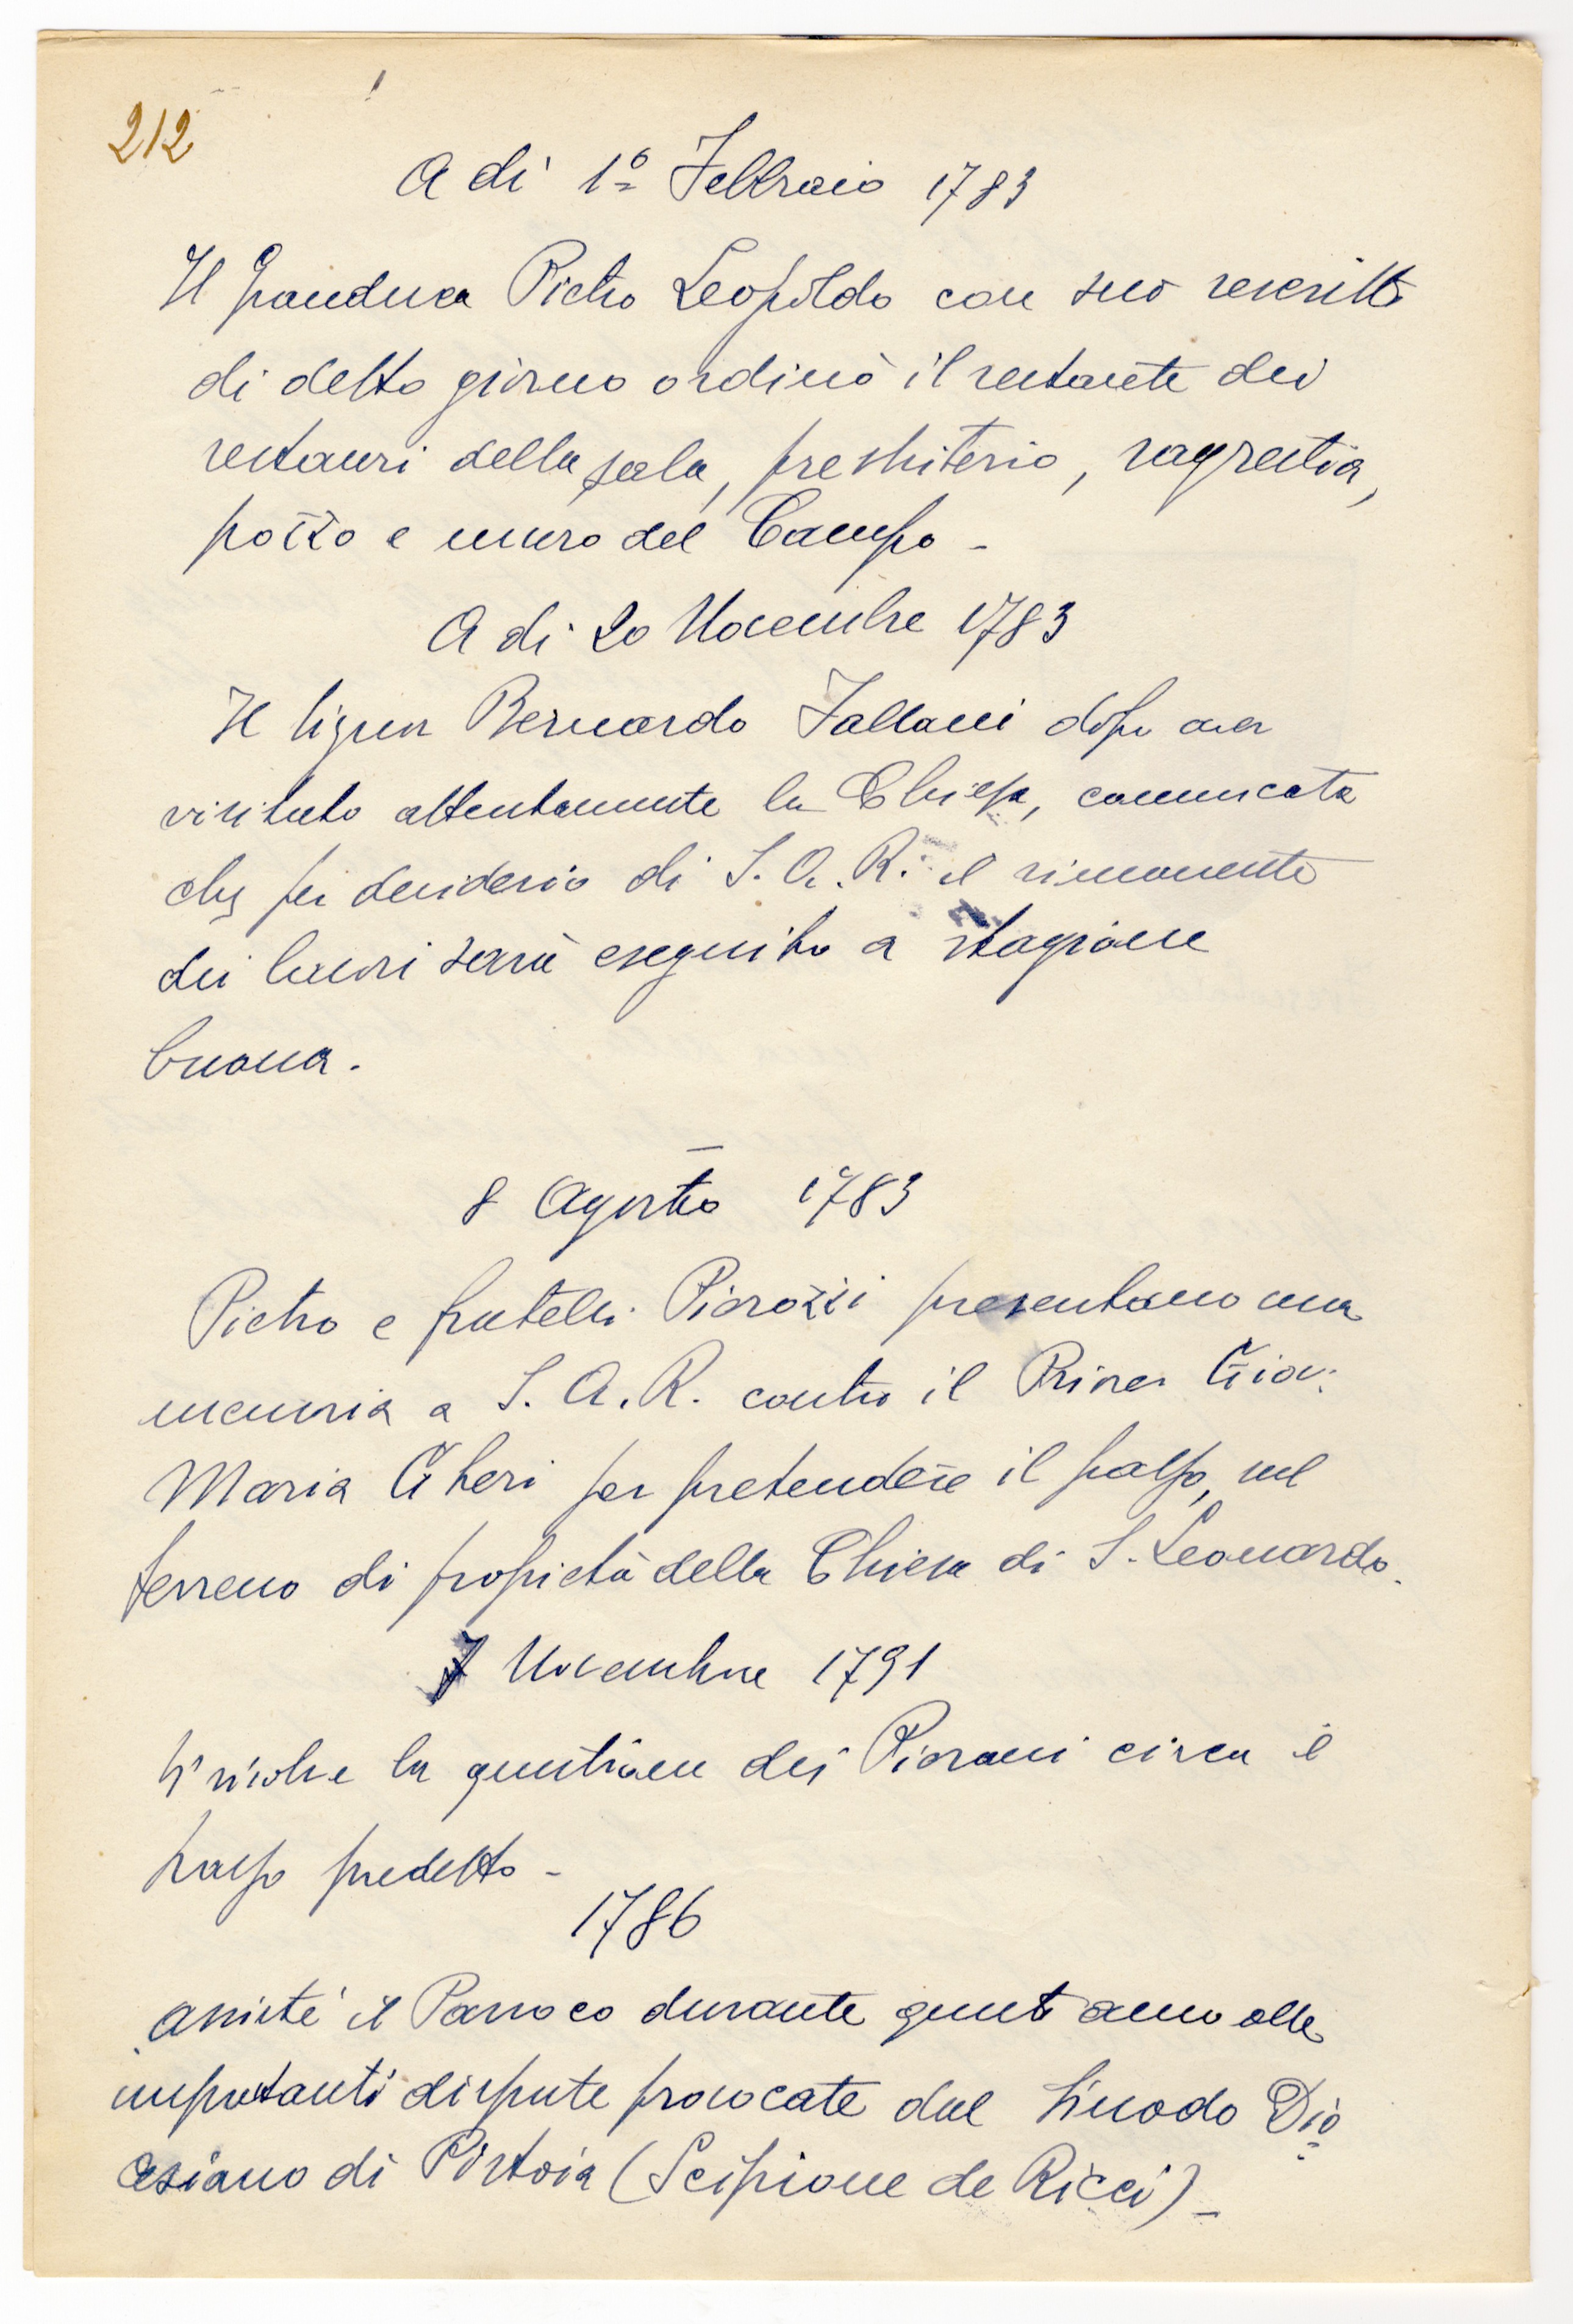 212
A dì 1º Febbraio 1783
Il Granduca Pietro Leopoldo con suo rescritto
di detto giorno ordinò il restante dei
restauri della sala, presbiterio, sagrestia,
pozzo e muro del Campo -
A di 20 Novembre 1783
Il Signor Bernardo Fallani dopo aver
visitato attentamente la Chiesa, comunicata
che per desiderio di S. A. R. il rimanente
dei lavori sarà eseguito a stagione
buona.
8 Agosto 1783
Pietro e fratelli Piovozzi presentano una
memoria a S. A. R. contro il Prior Giov:
Maria Gheri per pretendere il passo, sul
terreno di propietà della Chiesa di S. Leonardo.
7 Novembre 1791
Si risolve la questione dei Piovani circa il
passo predetto -
1786
Assistè il Parroco durante quest anno alle
importanti dispute provocate dal Sinodo Dio
cesiano di Pistoia (Scipione de Ricci) -